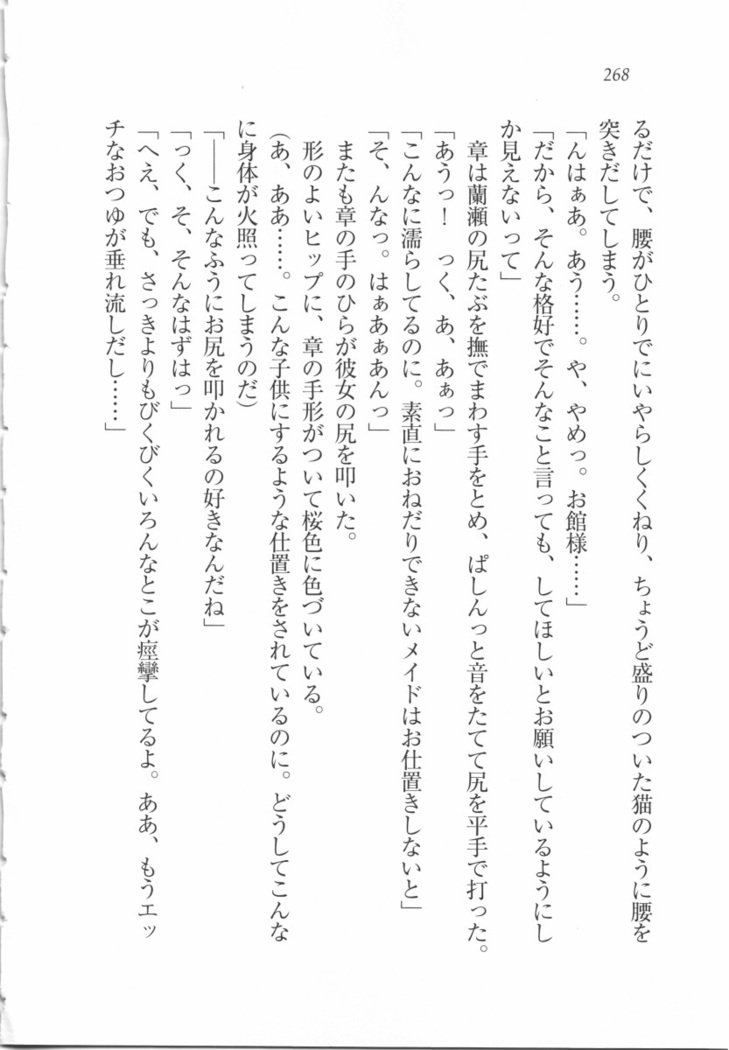 268
るだけで、腰がひとりでにいやらしくくねり、ちょうど盛りのついた猫のように腰を
突きだしてしまう。
「んはぁあ。あう……。や、やめっ。お館様……」
「だから、そんな格好でそんなこと言っても、してほしいとお願いしているようにし
か見えないって」
　章は蘭瀬の尻たぶを撫でまわす手をとめ、ぱしんっと音をたてて尻を平手で打った。
「あうっ！　っく、あ、あぁっ」
「こんなに濡らしてるのに。素直におねだりできないメイドはお仕置きしないと」
「そ、んなっ。はぁあぁあんっ」
　またも章の手のひらが彼女の尻を叩いた。
　形のよいヒップに、章の手形がついて桜色に色づいている。
（あ、ああ……。こんな子供にするような仕置きをされているのに。どうしてこんな
に身体が火照ってしまうのだ）
「――こんなふうにお尻を叩かれるの好きなんだね」
「っく、そ、そんなはずはっ」
「へえ、でも、さっきよりもびくびくいろんなとこが痙攣してるよ。ああ、もうエッ
チなおつゆが垂れ流しだし……」